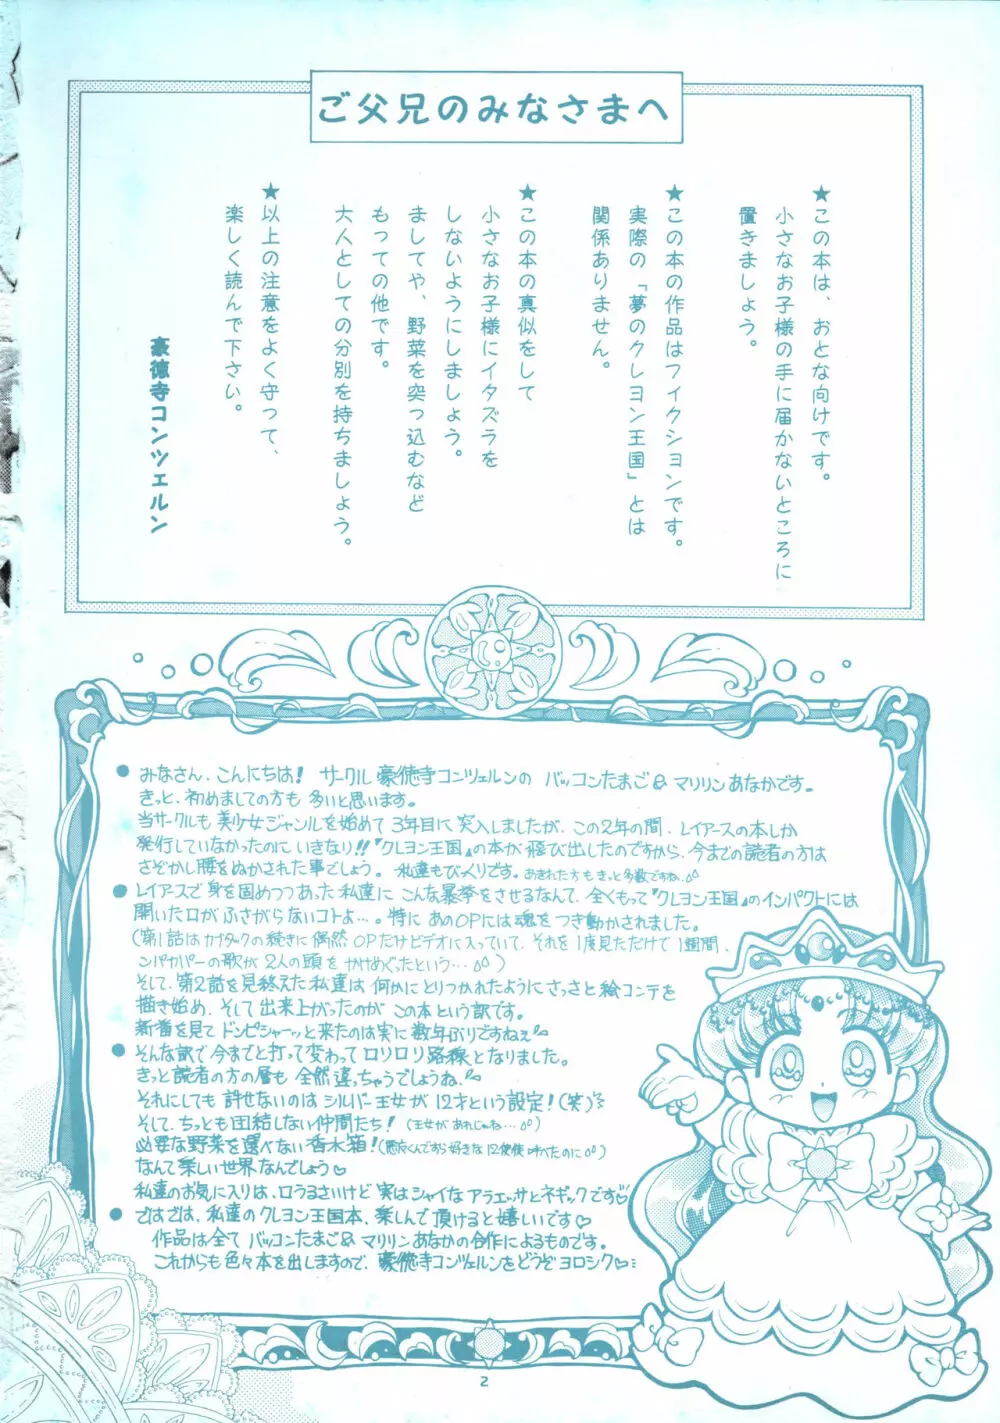 ご父兄のみなさまへ
★この本は、おとな向けです。
小さなお子様の手に届かないところに
置きましょう。
★この本の作品はフィクションです。
実際の「夢のクレヨン王国」とは
関係ありません。
★この本の真似をして
小さなお子様にイタズラを
しないようにしましょう。
ましてや、野菜を突っ込むなど
もっての他です。
大人としての分別を持ちましょう。
★以上の注意をよく守って、
楽しく読んで下さい。
豪徳寺コンツェルン
●みなさん、こんにちは! サークル豪徳寺コンツェルンの バッコンたまご&マリリンあなかです。
きっと、初めましての方も 多いと思います。
当サークルも 美少女ジャンルを始めて 3年目に 突入しましたが、この2年の間、レイアースの本しか
発行していなかったのに いきなり!!『クレヨン王国』の本が 飛び出したのですから、今までの読者の方は
さぞかし腰をぬかされた事でしょう。 私達もびっくりです。あきれた方もきっと多数ですね
●レイアースで 身を固めつつあった私達に こんな暴挙をさせるなんて、全くもって『クレヨン王国』のインパクトには
開いた口がふさがらないコトよ…。特に あのOPには魂をつき動かされました。
(第1話はカブタックの続きに 偶然 OPだけビデオに入っていて、それを 1度見ただけで 1週間、
ンパカパーの歌が 2人の頭を かけめぐったという…)
そして、第2話を見終えた私達は 何かにとりつかれたように さっさと絵コンテを
描き始め、そして出来上がったのが この本という訳です。
新番を見て ドンピシャーッと来たのは 実に 数年ぶりですねぇ
●そんな訳で 今までと打って変わって ロリロリ路線となりました。
きっと読者の方の層も 全然違っちゃうでしょうね。
それにしても 許せないのは シルバー王女が 12才という設定!(笑)
そして、ちっとも団結しない仲間たち!(王女があれじゃね…)
必要な野菜を選べない香水箱!
なんて 楽しい世界なんでしょう♡
私達のお気に入りは、口うるさいけど 実はシャイな アラエッサとネギックです♡
●ではでは、私達のクレヨン王国本、楽しんで頂けると嬉しいです♡
作品は全て バッコンたまご&マリリンあなかの合作によるものです。
これからも色々本を出しますので、豪徳寺コンツェルンをどうぞヨロシク♡
2